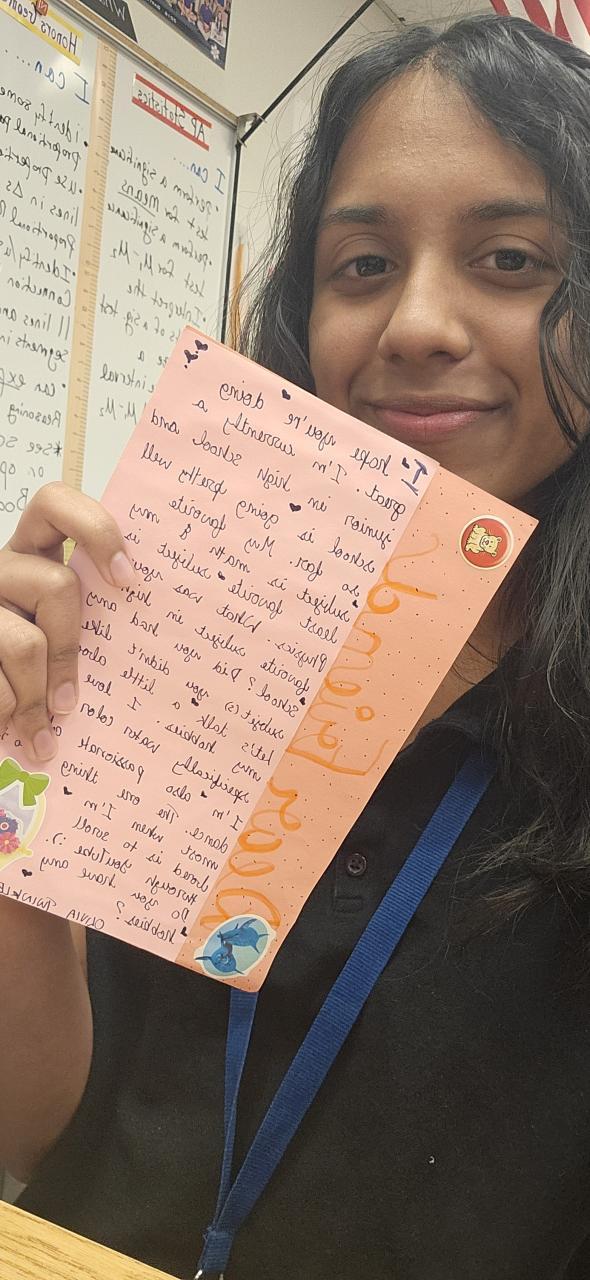 Honors Geometry
I can...
• identify some
proportional pa
• use propertie
lines in Δs
proportional
• Identify/
Connection
|| lines an
segments in
• can exp
Reasoning
*see sc
or op
AP Statistics
I can...
• perform a significance
test for means
• perform a significance
test for M₁-M₂
• Interpret the
of a sig test
a
interval
M₁-M₂
Dear Friend
I hope you're doing
great. I'm currently a
junior in high school and
school is going pretty well
so far. My favorite
subject is math & my
least favorite subject is
Physics. What was your
favorite subject in high
School? Did you had any
subject(s) you didn't like
let's talk a little abou
my hobbies. I love
specifically water color
I'm also passionate
dance. The one thing
most when I'm
bored is to scroll
through YouTube :).
Do you have any
hobbies?
OLIVIA